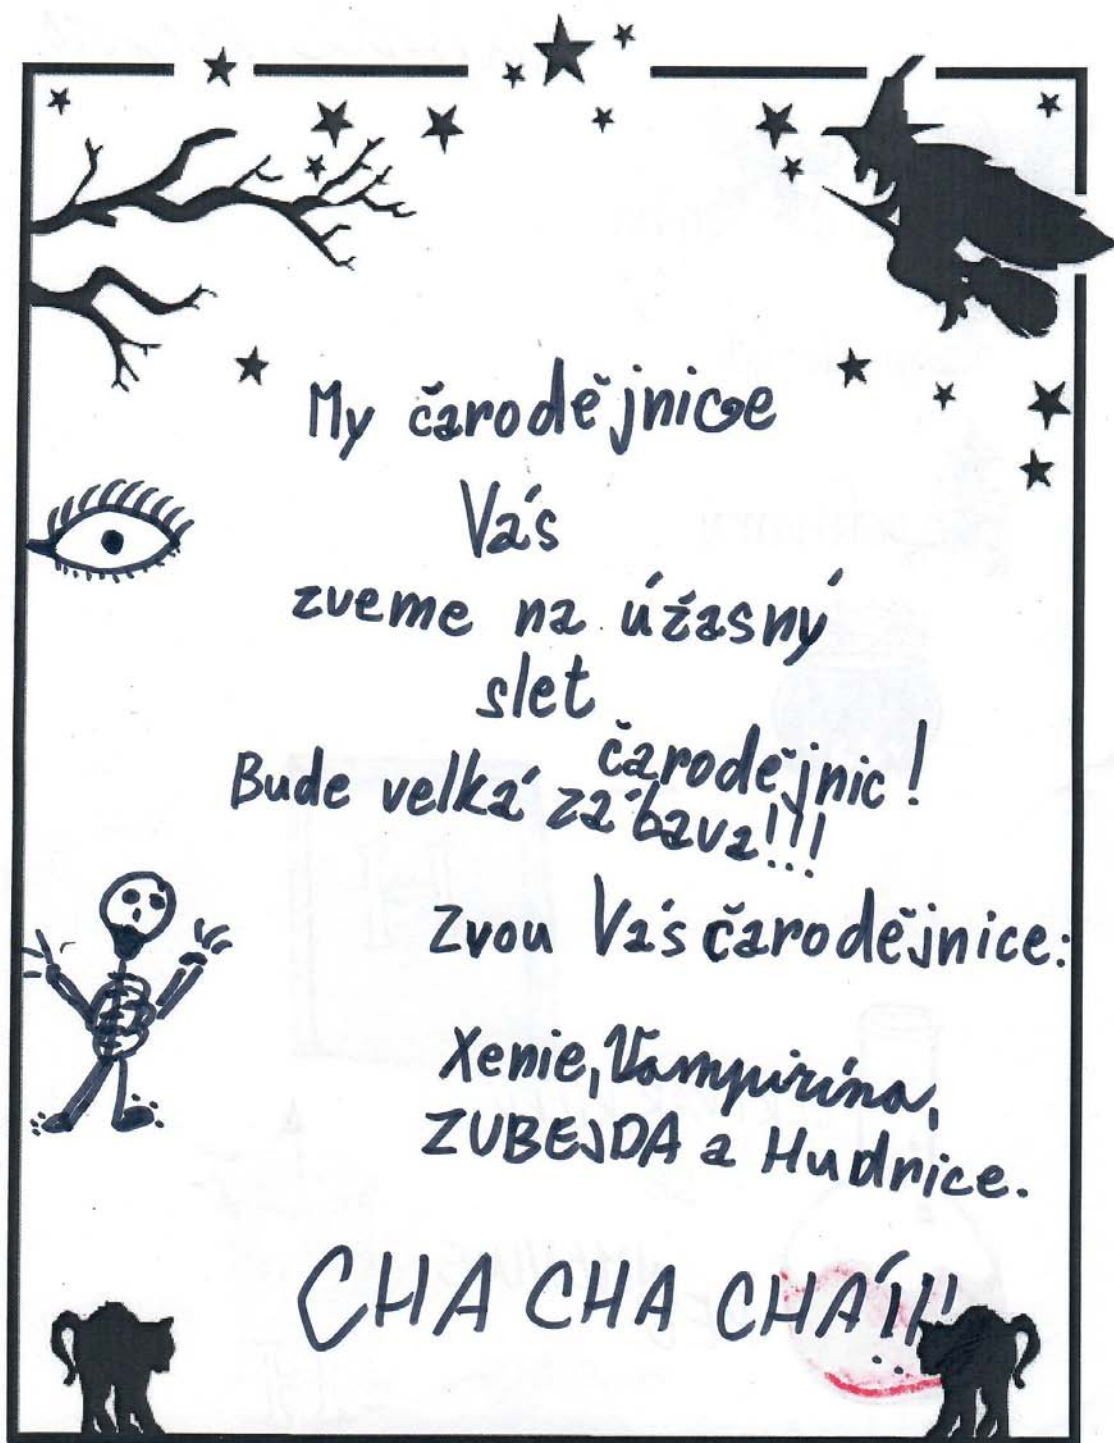 My čarodějnice
Vás
zveme na úžasný
slet
čarodějnic!
Bude velká zábava!!!
Zvou Vás čarodějnice:
Xenie, Vampirína,
ZUBEJDA a Hudrnice.
CHA CHA CHÁ!!!